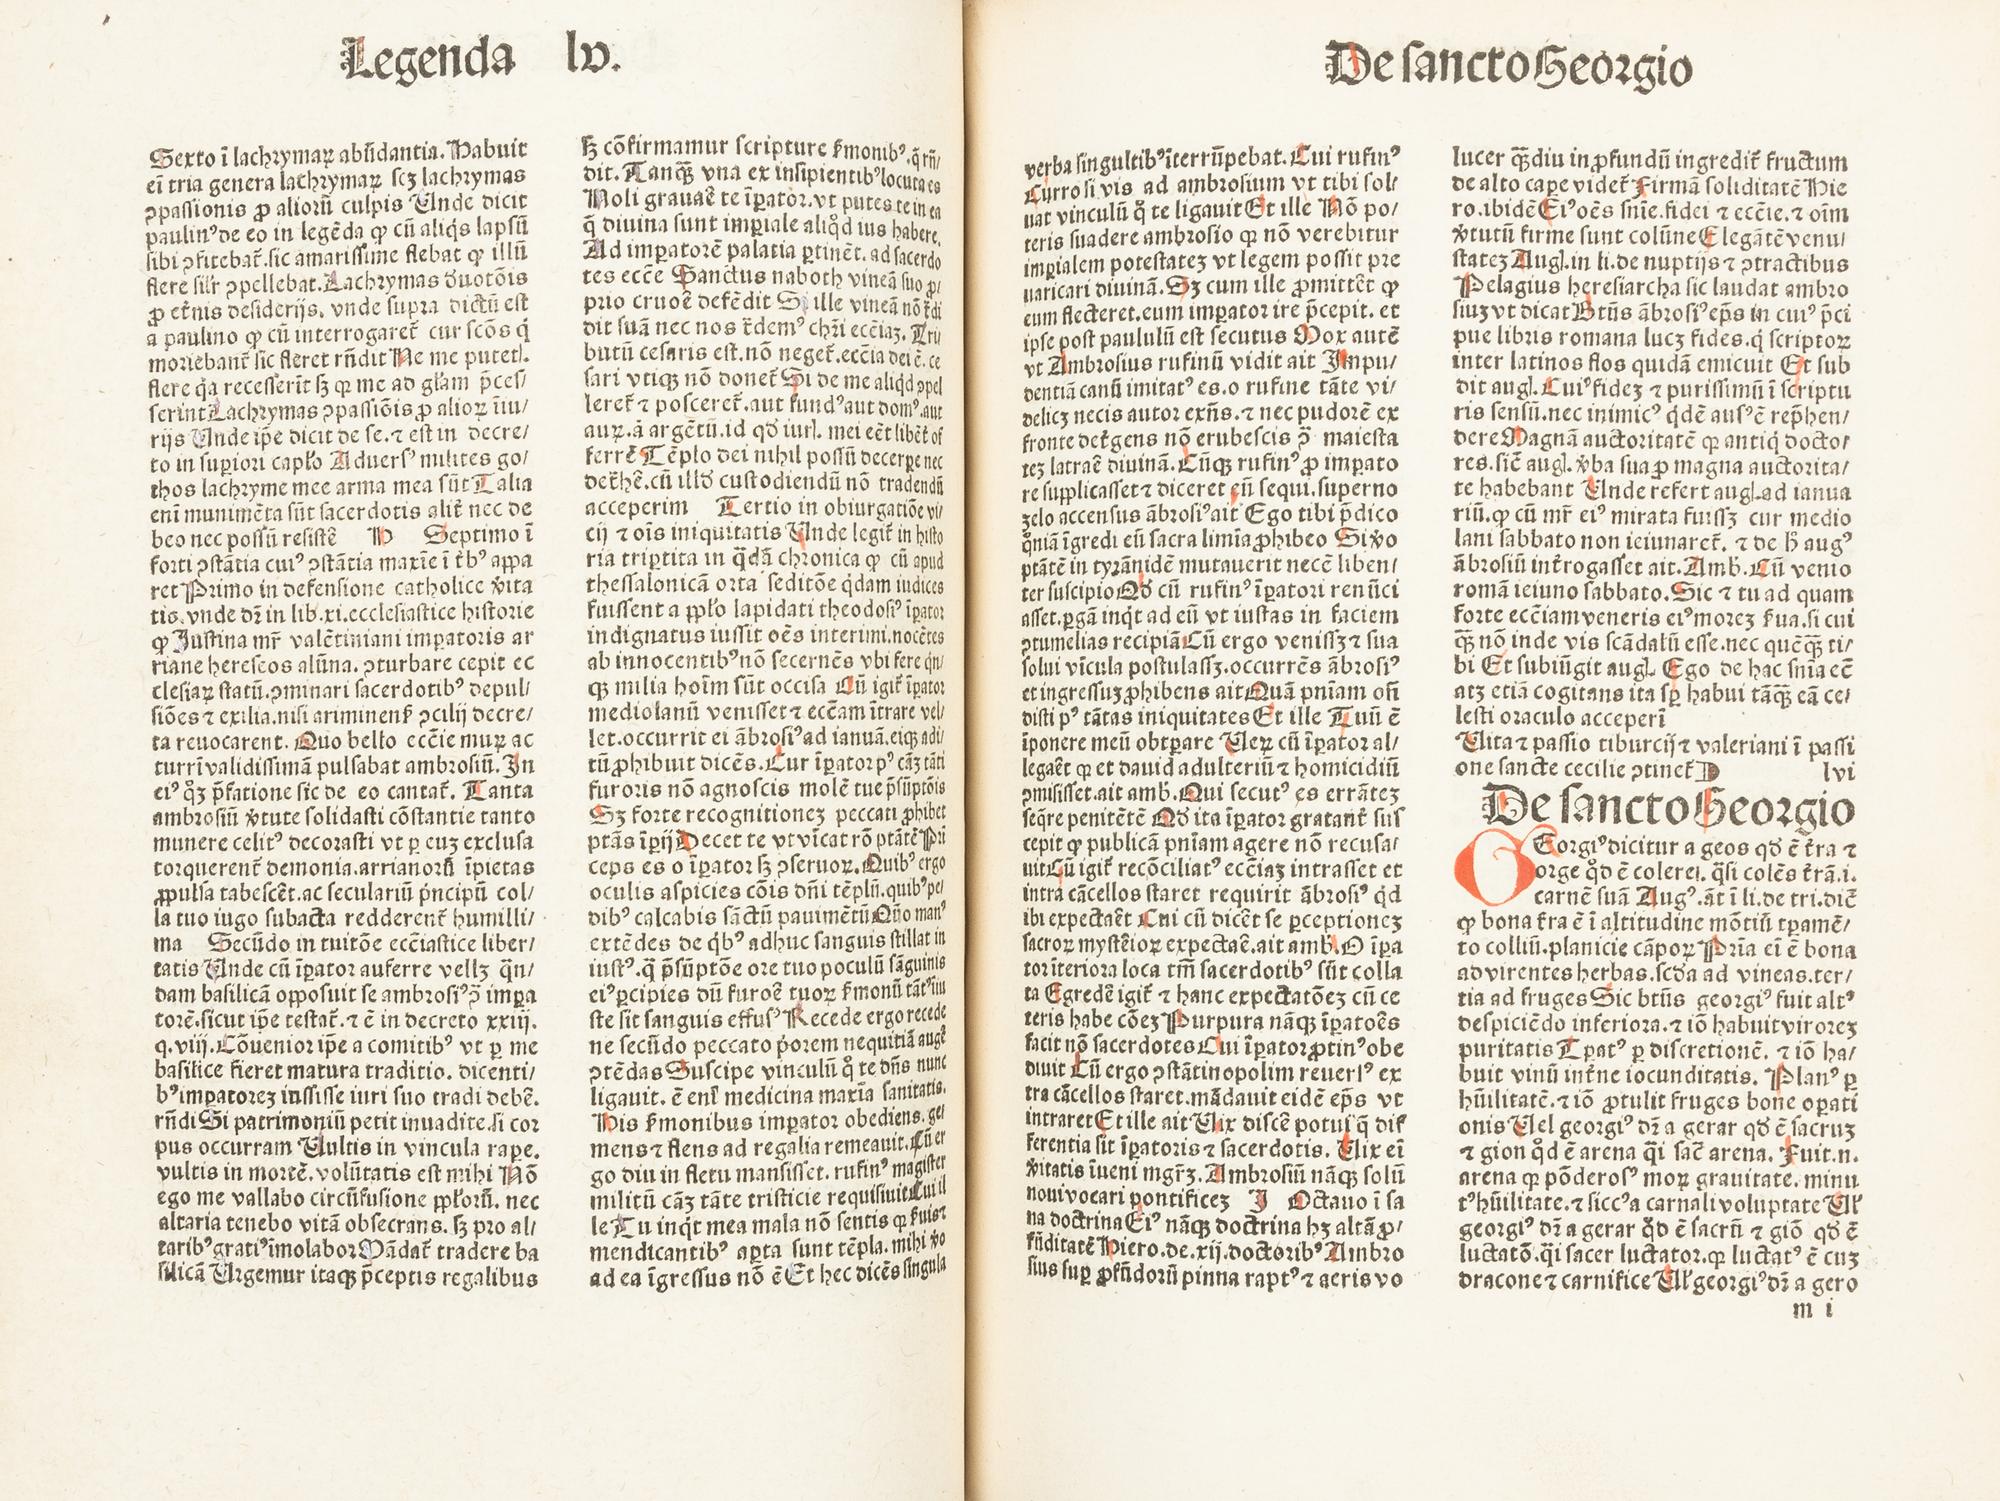 Legenda lv.
Sexto ī lachrymaꝝ abūdantia. Habuit
eī tria genera lachrymaꝝ scꝫ lachrymas
ꝯpassionis ꝓ aliorū culpis Unde dicit
paulinꝰ de eo in legēda ꝙ cū aliq̇s lapsū
sibi ꝯfitebat̄. sic amarissime flebat ꝙ illū
flere sil̄r ꝯpellebat. Lachrymas d̄uotōis
ꝓ et̄nis desiderijs. vnde supra dictū est
a paulino ꝙ cū interrogaret̄ cur scōs q̇
moriebant̄ sic fleret rn̄dit Ne me putetl.
flere q̇a recesserīt sꝫ qꝛ me ad gl̄am p̄ces/
serint Lachrymas ꝯpassiōis ꝓ alioꝝ īiu/
rijs Unde ip̄e dicit de se. ⁊ est in decre/
to in supiori capl̄o Aduersꝰ milites go/
thos lachryme mee arma mea sūt Talia
enī munimēta sūt sacerdotis alit̄ nec de
beo nec possū resistē H Septimo ī
forti ꝯstātia cuiꝰ ꝯstātia maxīe ī t̄bꝰ appa
ret Primo in defensione catholice v̄ita
tis. vnde dr̄ in lib. xi. ecclesiastice historie
ꝙ Justina mr̄ valētiniani imꝑatoris ar
riane hereseos alūna. ꝯturbare cepit ec
clesiaꝝ statū. ꝯminari sacerdotibꝰ depul/
siōes ⁊ exilia. nisi ariminenẜ ꝯcilij decre/
ta reuocarent. Quo bello ecc̄ie muꝝ ac
turrī validissimā pulsabat ambrosiū. In
eiꝰ qͦꝫ p̄fatione sic de eo cantat̄. Tanta
ambrosiū v̄tute solidasti cōstantie tanto
munere celitꝰ decorasti vt ꝑ euꝫ exclusa
torquerent̄ demonia. arrianorū īpietas
ꝓpulsa tabescēt. ac seculariū ṗncipū col/
la tuo iugo subacta redderent̄ humilli/
ma Secūdo in tuitōe ecc̄iastice liber/
tatis Unde cū īꝑator auferre vellꝫ q̄n/
dam basilicā opposuit se ambrosiꝰ ꝯ̄ imꝑa
torē. sicut ip̄e testat̄. ⁊ ē in decreto xxiij.
q. viij. Cōuenior ip̄e a comitibꝰ vt ꝑ me
basilice fieret matura traditio. dicenti/
bꝰ imꝑatoreꝫ iussisse iuri suo tradi debē.
rn̄di Si patrimoniū petit inuadite. si cor
pus occurram Uultis in vincula rape.
vultis in mortē. volūtatis est mihi Nō
ego me vallabo circūfusione ppl̄orū. nec
altaria tenebo vitā obsecrans. sꝫ pro al/
taribꝰ gratiꝰ īmolabor Mādat̄ tradere ba
silicā Urgemur itaqꝫ p̄ceptis regalibus
sꝫ cōfirmamur scripture ẜmonibꝰ. q̄ rn̄/
dit. Tanqꝫ̄ vna ex insipientibꝰ locuta es
Noli grauaē te īꝑator. vt putes te in ea
q̄ diuina sunt imꝑiale aliq̇d ius habere.
Ad imꝑatorē palatia ꝑtinēt. ad sacerdo
tes ecc̄e Sanctus naboth vineā suo ꝓ/
prio cruoē defēdit Si ille vineā nō t̄di
dit suā nec nos t̄demꝰ chr̄i ecc̄iaꝫ. Tri
butū cesaris est. nō neget̄. ecc̄ia dei ē. ce
sari vtiqꝫ nō donet̄ Si de me aliq̇d ꝯpel
leret̄ ⁊ posceret̄. aut fundꝰ aut domꝰ. aut
auꝝ. a argētū. id qd̄ iurl. mei eēt libēt̄ of
ferrē Tēplo dei nihil possū decerpe nec
det̄hē. cū illd̄ custodiendū nō tradendū
acceperim Tertio in obiurgatiōe vi/
cij ⁊ oīs iniquitatis Unde legit̄ in histo
ria triptita in q̄dā chronica ꝙ cū apud
thessalonicā orta seditōe q̇dam iudices
fuissent a ppl̄o lapidati theodosiꝰ īꝑator
indignatus iussit oēs interimi. nocētes
ab innocentibꝰ nō secernēs vbi fere q̇n/
qꝫ milia hoīm sūt occisa Cū igit̄ īꝑator
mediolanū venisset ⁊ ecc̄am ītrare vel/
let. occurrit ei ābrosiꝰ ad ianuā. eiqꝫ adi/
tū ꝓhibuit dicēs. Cur īꝑator pꝰ cāꝫ tāti
furoris nō agnoscis molē tue p̄sūptōis
Sꝫ forte recognitioneꝫ peccati ꝓhibet
ptās īꝑij Decet te vt vīcat rō ptātē Pri
ceps es o īꝑator sꝫ ꝯseruoꝝ. Quibꝰ ergo
oculis aspicies cōis dn̄i tēplū. quibꝰ pe/
dibꝰ calcabis sāctū pauimētū Quō manꝰ
extēdes de q̇bꝰ adhuc sanguis stillat in
iustꝰ. q̄ p̄sūptōe ore tuo poculū sāguinis
eiꝰ ꝑcipies dū furoē tuoꝝ ẜmonū tātꝰ iu
ste sit sanguis effusꝰ Recede ergo recede
ne secūdo peccato ṗorem nequitiā augē
ꝯtēdas Suscipe vinculū qͦ te dn̄s nunc
ligauit. ē enī medicina maxīa sanitatis.
His ẜmonibus imꝑator obediens. ge/
mens ⁊ flens ad regalia remeauit. Cū er
go diu in fletu mansisset. rufinꝰ magister
militū cāꝫ tāte tristicie requisiuit Cui il
le Tu inq̇t mea mala nō sentis qꝛ ẜuis ⁊
mendicantibꝰ aꝑta sunt tēpla. mihi v̄o
ad ea īgressus nō ē Et hec dicēs singula
De sancto Georgio
verba singultibꝰ īterrūpebat. Cui rufinꝰ
Curro si vis ad ambrosium vt tibi sol/
uat vinculū qͦ te ligauit Et ille Nō po/
teris suadere ambrosio qꝛ nō verebitur
imꝑialem potestateꝫ vt legem possit pre
uaricari diuinā. Sꝫ cum ille ꝓmittēt ꝙ
eum flecteret. eum imꝑator ire p̄cepit. et
ipse post paululū est secutus Mox autē
vt Ambrosius rufinū vidit ait Impu/
dentiā canū imitatꝰ es. o rufine tāte vi/
delicꝫ necis autor exn̄s. ⁊ nec pudorē ex
fronte det̄gens nō erubescis ꝯ̄ maiesta
teꝫ latraē diuinā. Cūqꝫ rufinꝰ ꝓ imꝑato
re supplicasset ⁊ diceret eū sequi. superno
ꝫelo accensus ābrosiꝰ ait Ego tibi p̄dico
qͦniā īgredi eū sacra limīa ꝓhibeo Si v̄o
ptātē in tyrānidē mutauerit necē liben/
ter suscipio Qd̄ cū rufinꝰ īꝑatori renūci
asset. ꝑgā inq̇t ad eū vt iustas in faciem
ꝯtumelias recipiā Cū ergo venissꝫ ⁊ sua
solui vīcula postulassꝫ. occurrēs ābrosiꝰ
et ingressuꝫ ꝓhibens ait Quā pn̄iam osī
disti pꝰ tātas iniquitates Et ille Tuū ē
īponere meū obtꝑare Ueꝝ cū īꝑator al/
legaēt ꝙ et dauid adulteriū ⁊ homicidiū
ꝯmisisset. ait amb. Qui secutꝰ es errāteꝫ
seq̄re penitētē Qd̄ ita īꝑator gratant̄ sus
cepit ꝙ publicā pn̄iam agere nō recusa/
uit Cū igit̄ recōciliatꝰ ecc̄iaꝫ intrasset et
intra cācellos staret requirit ābrosiꝰ q̇d
ibi expectaēt Cui cū dicēt se ꝑceptioneꝫ
sacroꝝ mystēioꝝ expectaē. ait amb. O īꝑa
tor īteriora loca tm̄ sacerdotibꝰ sūt colla
ta Egredē igit̄ ⁊ hanc expectatōeꝫ cū ce
teris habe cōeꝫ Purpura nāqꝫ īꝑatoēs
facit nō sacerdotes Cui īꝑator ꝓtinꝰ obe
diuit Cū ergo ꝯstātinopolim reuerlꝰ ex
tra cācellos staret. mādauit eidē ep̄s vt
intraret Et ille ait Uix discē potui q̄ dif
ferentia sit īꝑatoris ⁊ sacerdotis. Uix eī
v̄itatis īueni mgr̄ꝫ. Ambrosiū nāqꝫ solū
noui vocari pontificeꝫ J Octauo ī sa
na doctrina Eiꝰ nāqꝫ doctrina hꝫ altā ꝓ/
fūditatē Hiero. de. xij. doctoribꝰ Ambro
sius suꝑ ꝓfūdorū pinna raptꝰ ⁊ aeris vo
lucer qꝫ̄diu in ꝓfundū ingredit̄ fructum
de alto cape videt̄ Firmā soliditatē Hie
ro. ibidē Eiꝰ oēs sn̄ie. fidei ⁊ ecc̄ie. ⁊ oīm
v̄tutū firme sunt colūne Elegātē venu/
stateꝫ Augl. in li. de nuptijs ⁊ ꝯtractibus
Pelagius heresiarcha sic laudat ambro
siuꝫ vt dicat Btūs ābrosiꝰ ep̄s in cuiꝰ p̄ci
pue libris romana lucꝫ fides. q̇ scriptoꝝ
inter latinos flos quidā emicuit Et sub
dit augl. Cuiꝰ fideꝫ ⁊ purissimū ī scriptu
ris sensū. nec inimicꝰ q̇dē ausꝰ ē rep̄hen/
dere Magnā auctoritatē qꝛ antiq̇ docto/
res. sic̄ augl. v̄ba sua ꝓ magna auctorita/
te habebant Unde refert augl. ad ianua
riū. ꝙ cū mr̄ eiꝰ mirata fuissꝫ cur medio
lani sabbato non ieiunaret̄. ⁊ de h̄ augꝰ
ābrosiū int̄rogasset ait. Amb. Cū venio
romā ieiuno sabbato. Sic ⁊ tu ad quam
forte ecc̄iam veneris eiꝰ moreꝫ ẜua. si cui
qꝫ̄ nō inde vis scādalū esse. nec quēqꝫ̄ ti/
bi Et subiūgit augl. Ego de hac sn̄ia eē̄
atꝫ etiā cogitans ita sꝑ habui tāqꝫ̄ eā ce/
lesti oraculo acceperī
Uita ⁊ passio tiburcij ⁊ valeriani ī passi
one sancte cecilie ꝯtinet̄ D lvi
De sancto Georgio
GEorgiꝰ dicitur a geos qd̄ ē t̄ra ⁊
orge qͦd ē colere. q̄si colēs t̄rā. i.
carnē suā Augꝰ. āt ī li. de tri. dic̄
ꝙ bona t̄ra ē ī altitudine mōtiū tꝑamē/
to colliū. planicie cāpoꝝ Pria eī ē bona
ad virentes herbas. scd̄a ad vineas. ter/
tia ad fruges Sic btūs georgiꝰ fuit altꝰ
despiciēdo inferiora. ⁊ iō habuit viroreꝫ
puritatis Tꝑatꝰ ꝑ discretionē. ⁊ iō ha/
buit vinū int̄ne iocunditatis. Planꝰ ꝑ
hūilitatē. ⁊ iō ꝓtulit fruges bone oꝑati
onis Uel georgiꝰ dr̄ a gerar qd̄ ē sacruꝫ
⁊ gion qͦd ē arena q̄si sac̄ arena. Fuit. n.
arena qꝛ pōderosꝰ moꝝ grauitate. minu
tꝰ hūilitate. ⁊ siccꝰ a carnali voluptate Ul̄
georgiꝰ dr̄ a gerar qͦd ē sacrū ⁊ giō qd̄ ē
luctatō. q̄si sacer luctator. qꝛ luctatꝰ ē cuꝫ
dracone ⁊ carnifice Ul̄ georgiꝰ dr̄ a gero
m i